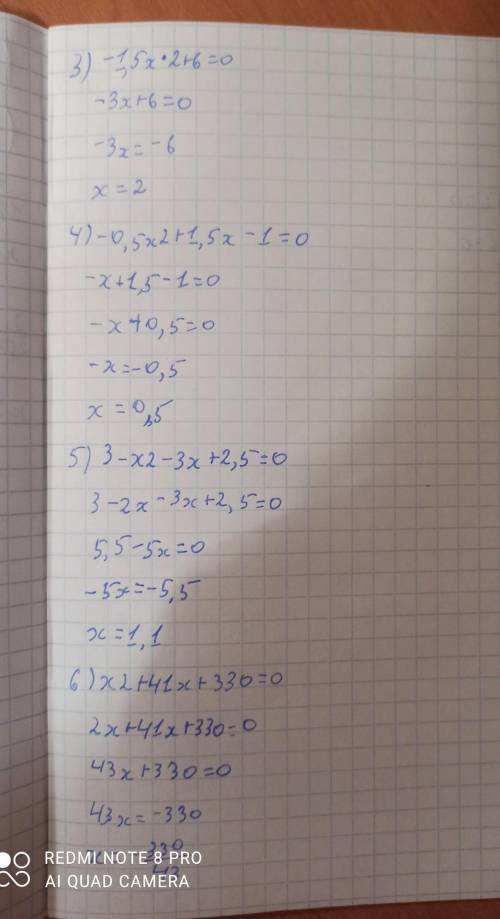 3) -1,5x·2+6=0
-3x+6=0
-3x=-6
x=2
4) -0,5x2+1,5x-1=0
-x+1,5-1=0
-x+0,5=0
-x=-0,5
x=0,5
5) 3-x2-3x+2,5=0
3-2x-3x+2,5=0
5,5-5x=0
-5x=-5,5
x=1,1
6) x2+41x+330=0
2x+41x+330=0
43x+330=0
43x=-330
330
43
REDMI NOTE 8 PRO
AI QUAD CAMERA